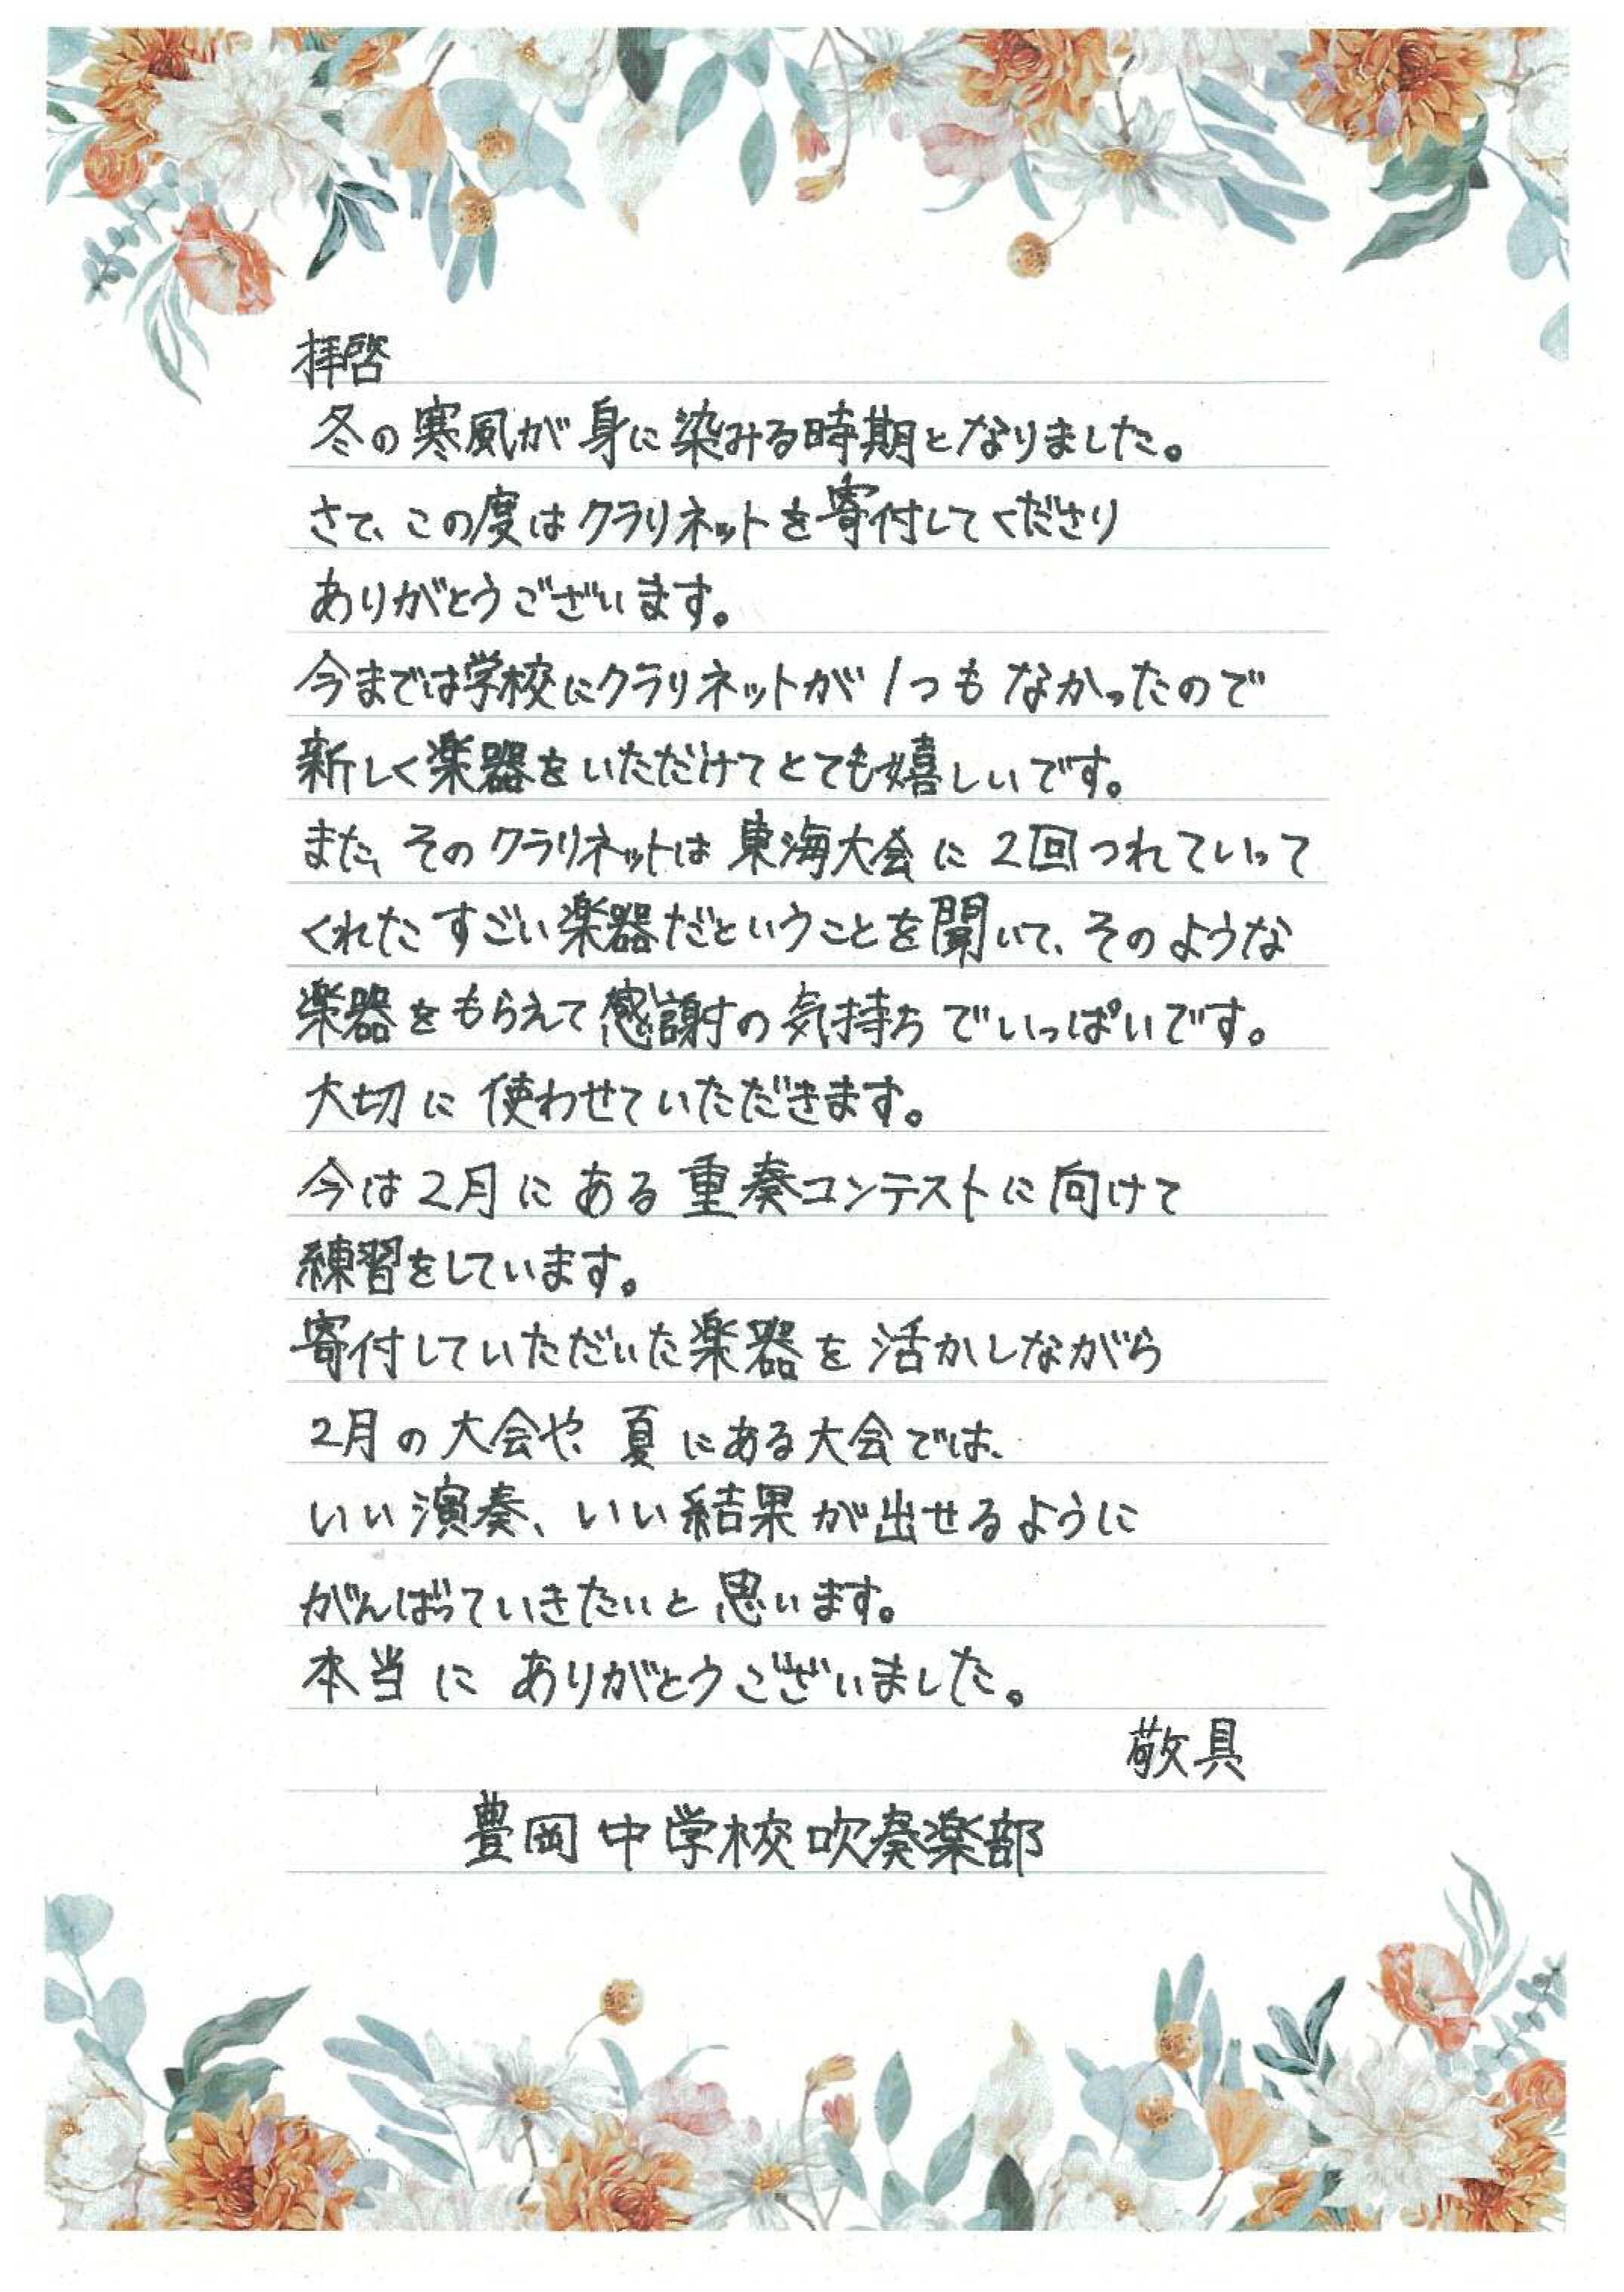 拝啓
冬の寒風が身に染みる時期となりました。
さて、この度はクラリネットを寄付してくださり
ありがとうございます。
今までは学校にクラリネットが1つもなかったので
新しく楽器をいただけてとても嬉しいです。
また、そのクラリネットは東海大会に2回つれていって
くれたすごい楽器だということを聞いて、そのような
楽器をもらえて感謝の気持ちでいっぱいです。
大切に使わせていただきます。
今は2月にある重奏コンテストに向けて
練習をしています。
寄付していただいた楽器を活かしながら
2月の大会や、夏にある大会では、
いい演奏、いい結果が出せるように
がんばっていきたいと思います。
本当にありがとうございました。
敬具
豊岡中学校吹奏楽部